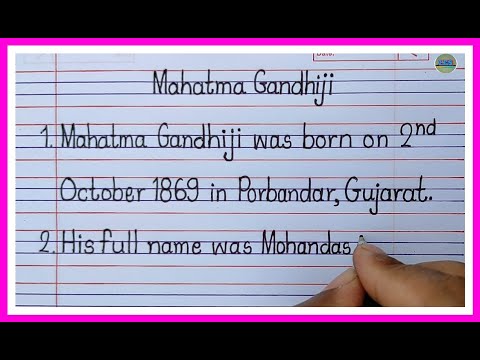 Mahatma Gandhiji
1. Mahatma Gandhiji was born on 2nd
October 1869 in Porbandar, Gujarat.
2. His full name was Mohandas